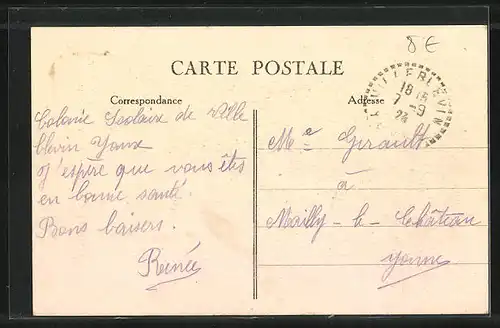 8€
CARTE POSTALE
Correspondance
Adresse
VILLEBLEVIN
18 15
7 -9
23
Colonie Scolaire de Ville
blevin Yonne
J'espère que vous êtes
en bonne santé.
Bons baisers.
Renée
Mme Girault
à
Mailly-le-Château
Yonne